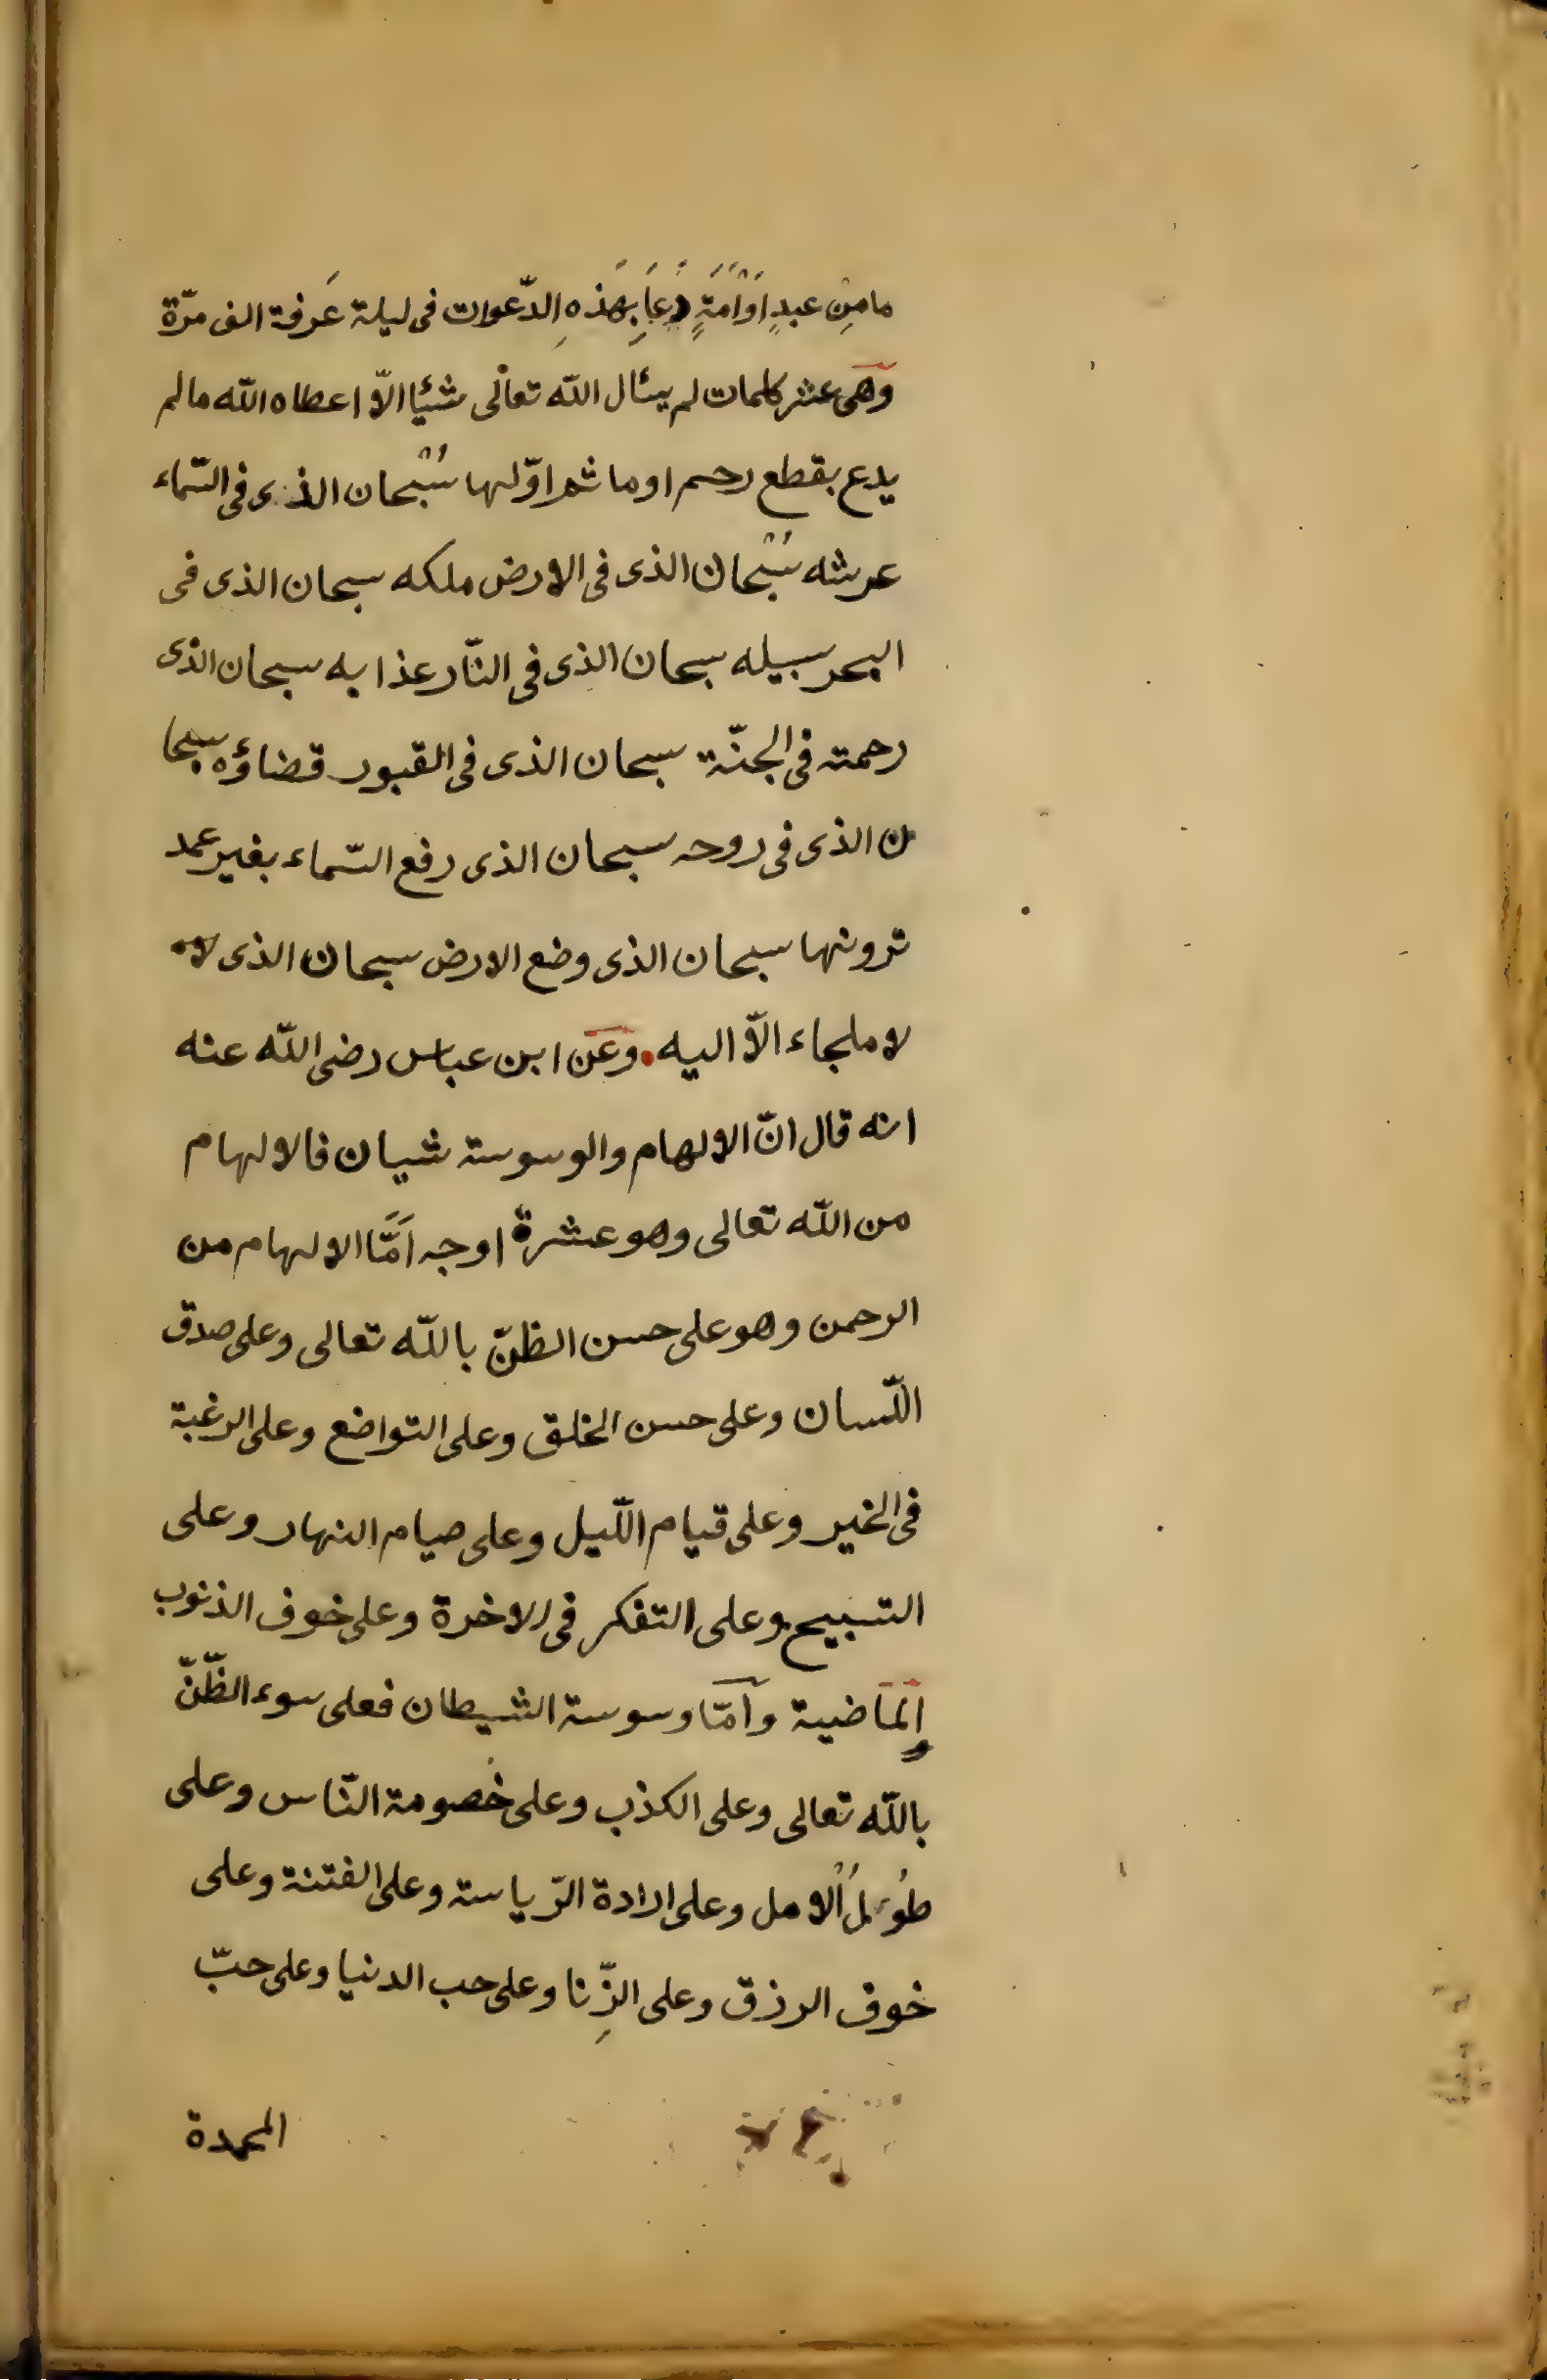 مامِن عبدٍ اَوْاَمَةٍ دَعَا بِهَذهِ الدّعوات فى ليلة عَرفة الف مرّة
وَهى عشر كلمات لم يسٔال اللّه تعالٰى شئيا الّا اعطاه اللّه مالم
يدع بقطع رحم او ماثم اوّلها سُبْحان الذى فى السّماء
عرشه سُبْحان الذى فى الارض ملكه سبحان الذى فى
البحر سبيله سبحان الذى فى النّار عذابه سبحان الذى
رحمته فى الجنّة سبحان الذى فى القبور قضاؤه سبحا
ن الذى فى روحه سبحان الذى رفع السّماء بغير عمد
ترونها سبحان الذى وضع الارض سبحان الذى لا
لا ملجاء الّا اليه . وعَن ابن عباس رضى اللّه عنه
انه قال انّ الالهام والوسوسة شيان فالالهام
من اللّه تعالى وهو عشرة اوجه اَمَّا الالهام من
الرحمن وهو على حسن الظنّ باللّه تعالى وعلى صدق
اللّسان وعلى حسن الخلق وعلى التواضع وعلى الرغبة
فى الخير وعلى قيام اللّيل وعلى صيام النهار وعلى
التسبيح وعلى التفكر فى الاخرة وعلى خوف الذنوب
اِلمَاضية وآمّا وسوسة الشيطان فعلى سوء الظّنّ
باللّه تعالى وعلى الكذب وعلى خصومة النّاس وعلى
طُولُ اْلامل وعلى ارادة الرّياسة وعلى الفتنة وعلى
خوف الرزق وعلى الزِّنا وعلى حب الدنيا وعلى حبّ
المحمدة